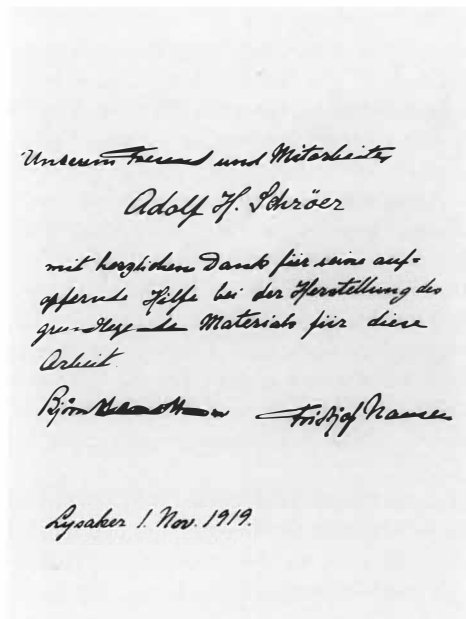 Unserem Freund und Mitarbeiter
Adolf H. Schröer
mit herzlichem Dank für seine auf-
opfernde Hilfe bei der Herstellung des
grundlegende Materials für diese
Arbeit.
Björn Helland-Hansen Fridtjof Nansen
Lysaker 1. Nov. 1919.